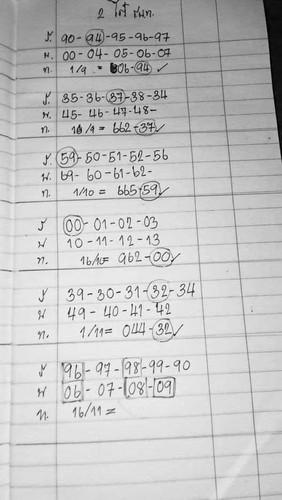 2 ตัว
ร. 90-94-95-96-97
น. 00-04-05-06-07
ท. 1/9 = 606-94✓
ร. 35-36-37-38-34
น. 45-46-47-48-
ท. 16/9 = 662-37✓
ร. 59-50-51-52-56
น. 69-60-61-62-
ท. 1/10 = 665-59✓
ร 00-01-02-03
น 10-11-12-13
ท. 16/10= 962-00✓
ร 39-30-31-32-34
น 49-40-41-42
ท. 1/11= 044-32✓
ร 96-97-98-99-90
น 06-07-08-09
ท. 16/11=